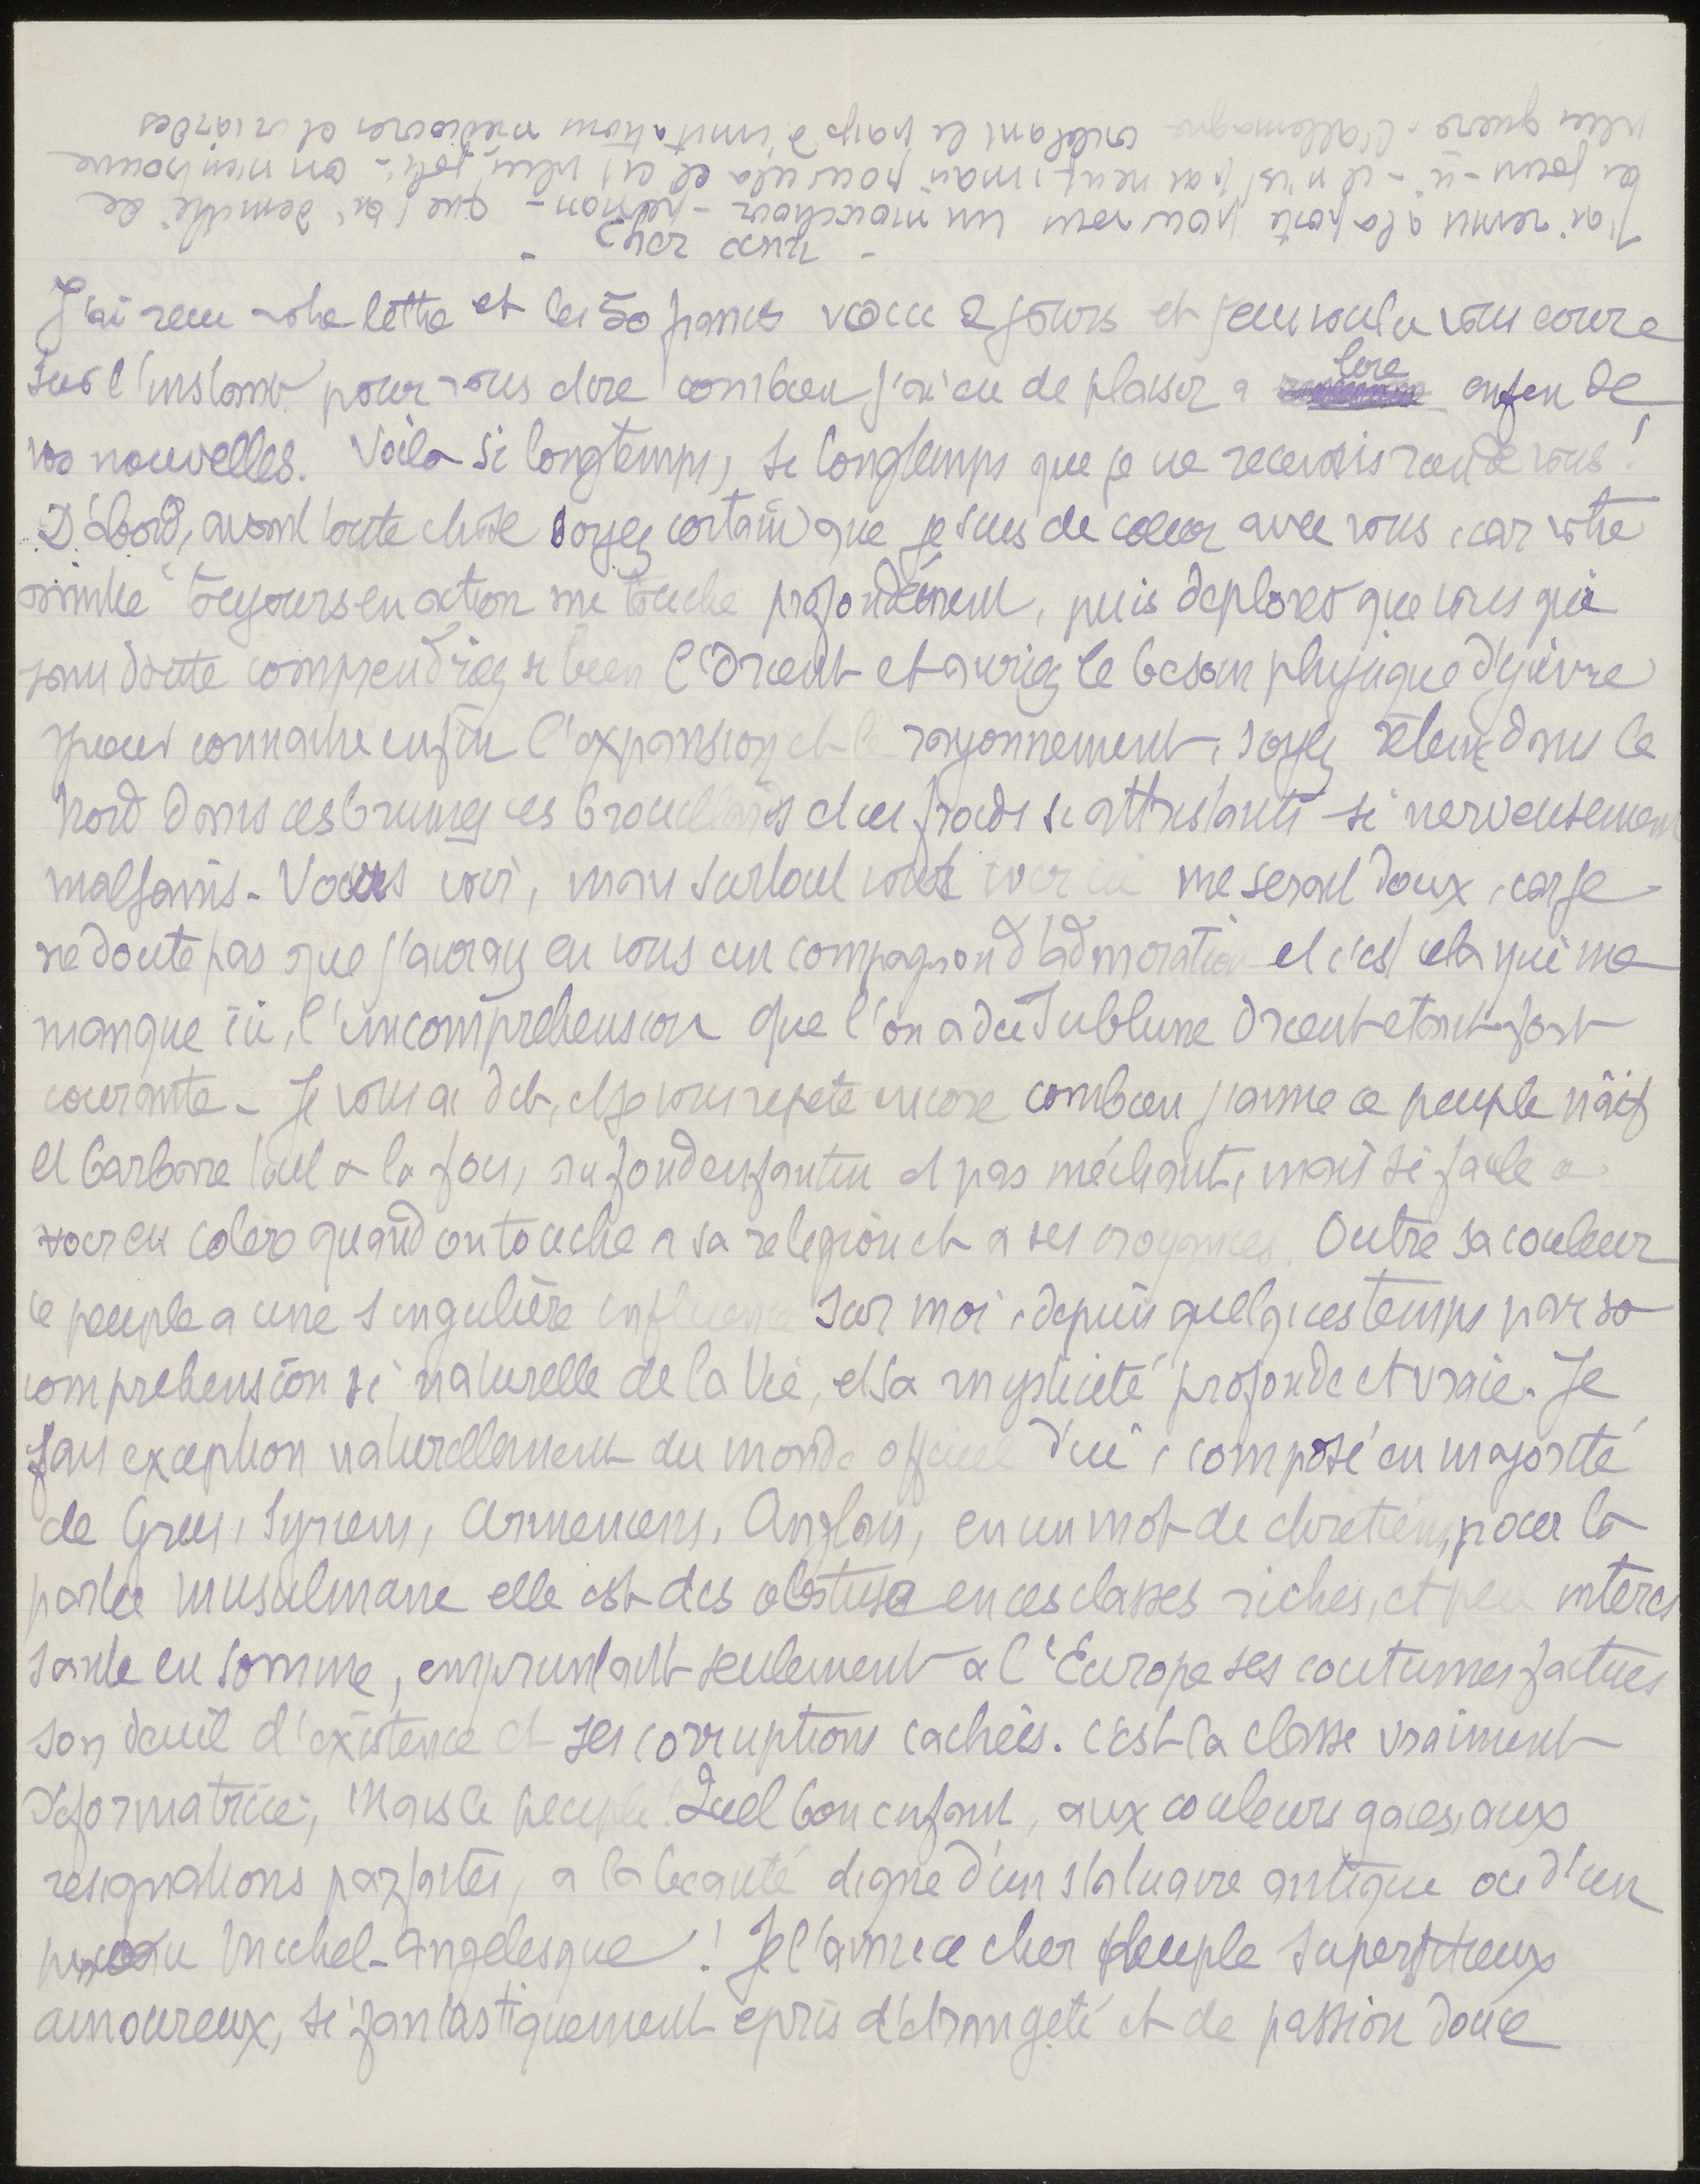 Cher ami
J'ai remis à la poste pour vous un mouchoir
J'ai recu votre lettre et les 50 francs voici 2 jours et j'eus voulu vous ecrire
sur l'instant pour vous dire combien j'ai eu de plaisir a lire enfin de
vos nouvelles. Voila si longtemps, si longtemps que je ne recevais rien de vous!
D'abord, avant toute chose soyez certain que je suis de coeur avec vous, car votre
amitie toujours en action me touche profondément, puis deplorer que vous qui
sans doute comprendriez si bien l'Orient et auriez le besoin physique d'y vivre
pour connaitre enfin l'expansion et le rayonnement, soyez retenu dans le
Nord dans ces brumes ces brouillards et ces froids si attristants si nerveusement
malsains - Vous voir, mais surtout vous voir ici me serait doux, car je
ne doute pas que j'aurais en vous un compagnon d'admiration et c'est cela qui me
manque ici, l'incomprehension que l'on a du Sublime Orient etant fort
courante - Je vous ai dit, et je vous repete encore combien j'aime ce peuple näif
et barbare tout a la fois, au fond enfantin et pas méchant, mais si facile a
voir en colère quand on touche a sa religion et a ses croyances. Outre sa couleur
ce peuple a une singulière influence sur moi, depuis quelques temps par sa
comprehension si naturelle de la Vie, et sa mysticité profonde et vraie. Je
fais exception naturellement du monde officiel d'ici, composé en majorité
de Grecs, Syriens, Armeniens, Anglais, en un mot de chretiens, pour la
partie musulmane elle est des obstuse en ces classes riches, et peu interes
sante en somme, empruntant seulement a l'Europe ses coutumes factices
son deuil d'existence et ses corruptions cachées. C'est la classe vraiment
déformatrice, Mais le peuple! Quel bon enfant, aux couleurs gaies, aux
resignations parfaites, a la beauté digne d'un statuaire antique ou d'un
Michel-Angelesque! Je l'aime ce cher peuple superstitieux
amoureux, si fantastiquement epris d'étrangeté et de passion douce